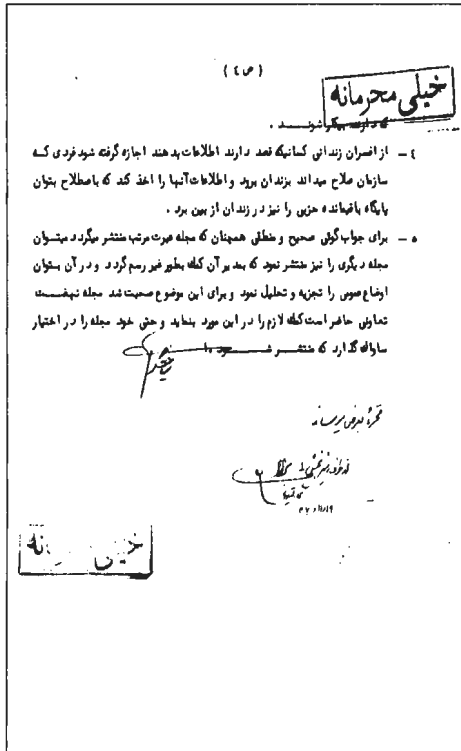 (ص ٤)
خیلی محرمانه
٤ - از افسران زندانی کسانیکه قصد دارند اطلاعات بدهند اجازه گرفته شود فردی که
سازمان صلاح میداند بزندان برود و اطلاعات آنها را اخذ کند که باصطلاح بتوان
پایگاه باقیمانده حزبی را نیز در زندان از بین برد .
٥ - برای جواب گوئی صحیح و منطقی همچنان که مجله عبرت مرتب منتشر میگردد میتوان
مجله دیگری را نیز منتشر نمود که بمدیر آن کمک بطور غیر رسم گردد و در آن بتوان
اوضاع عمومی را تجزیه و تحلیل نمود و برای این موضوع صحبت شد مجله نهضت
تعاونی حاضر است کمک لازم را در این مورد بنماید و حتی خود مجله را در اختیار
ساواک گذارد که منتشر شود